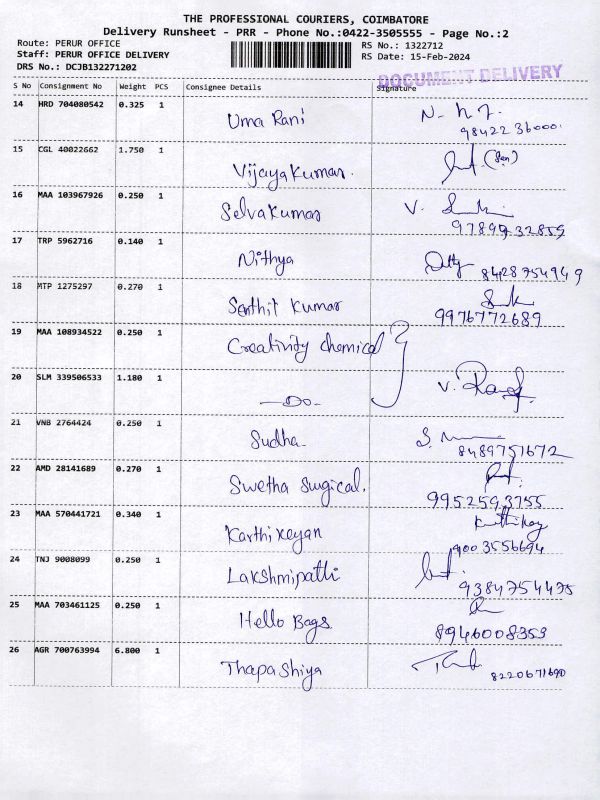 THE PROFESSIONAL COURIERS, COIMBATORE
Delivery Runsheet - PRR - Phone No.:0422-3505555 - Page No.:2
Route: PERUR OFFICE RS No.: 1322712
Staff: PERUR OFFICE DELIVERY RS Date: 15-Feb-2024
DRS No.: DCJB132271202
DOCUMENT DELIVERY
S No Consignment No Weight PCS Consignee Details Signature
14 HRD 704080542 0.325 1 Uma Rani
98422 36000
15 CGL 40022662 1.750 1 Vijayakumar.
16 MAA 103967926 0.250 1 Selvakumar V.
9789932859
17 TRP 5962716 0.140 1 Nithya
8428754949
18 MTP 1275297 0.270 1 Senthil Kumar
9976772689
19 MAA 108934522 0.250 1 Creativity chemical
20 SLM 339506533 1.180 1 —Do— V.
21 VNB 2764424 0.250 1 Sudha
8489751672
22 AMD 28141689 0.270 1 Swetha Surgical.
9952593755
23 MAA 570441721 0.340 1 Karthikeyan
9003556694
24 TNJ 9008099 0.250 1 Lakshmipathi
9384754475
25 MAA 703461125 0.250 1 Hello Bags
8946008353
26 AGR 700763994 6.800 1 Thapashiya
8220671690